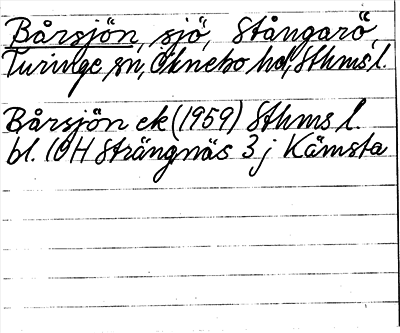 Bårsjön, sjö, Stångarö,
Turinge sn, Öknebo hd, Sthms l.
Bårsjön ek (1959) Sthms l.
bl. 10H Strängnäs 3j Kämsta